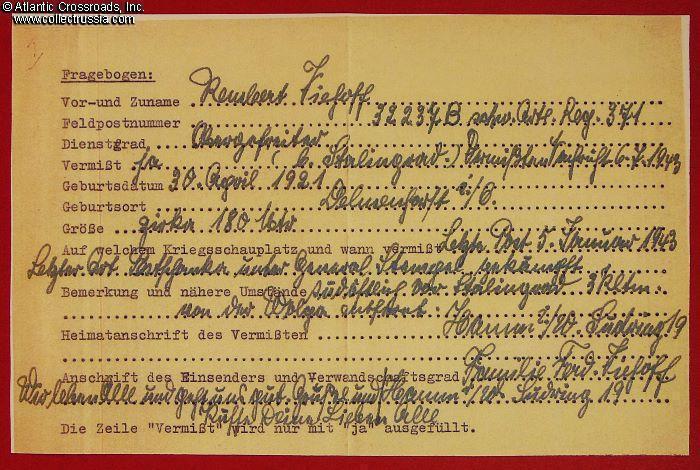 © Atlantic Crossroads, Inc.
www.collectrussia.com
Fragebogen:
Vor-und Zuname Rembert Fiehoff
Feldpostnummer 32237B schw. Art. Reg. 371
Dienstgrad Obergefreiter
Vermißt ja (b. Stalingrad) Vermißten Nachricht 6.7.1943
Geburtsdatum 30. April 1921
Geburtsort Delmenhorst i/O.
Größe zirka 180 Mtr
Auf welchem Kriegsschauplatz und wann vermißt Letzte Post 5. Januar 1943
Letzter Ort unter General Stempel gekämpft
Bemerkung und nähere Umstände südöstlich vor Stalingrad 3 klm.
von der Wolga entfernt.
Heimatanschrift des Vermißten Hamm i/W. Südring 19
Anschrift des Einsenders und Verwandschaftsgrad Familie Ferd. Fiehoff
Wir leben Alle und geht uns gut. Hamm i/W. Südring 19
Deine Lieben Alle
Die Zeile "Vermißt" wird nur mit "ja" ausgefüllt.